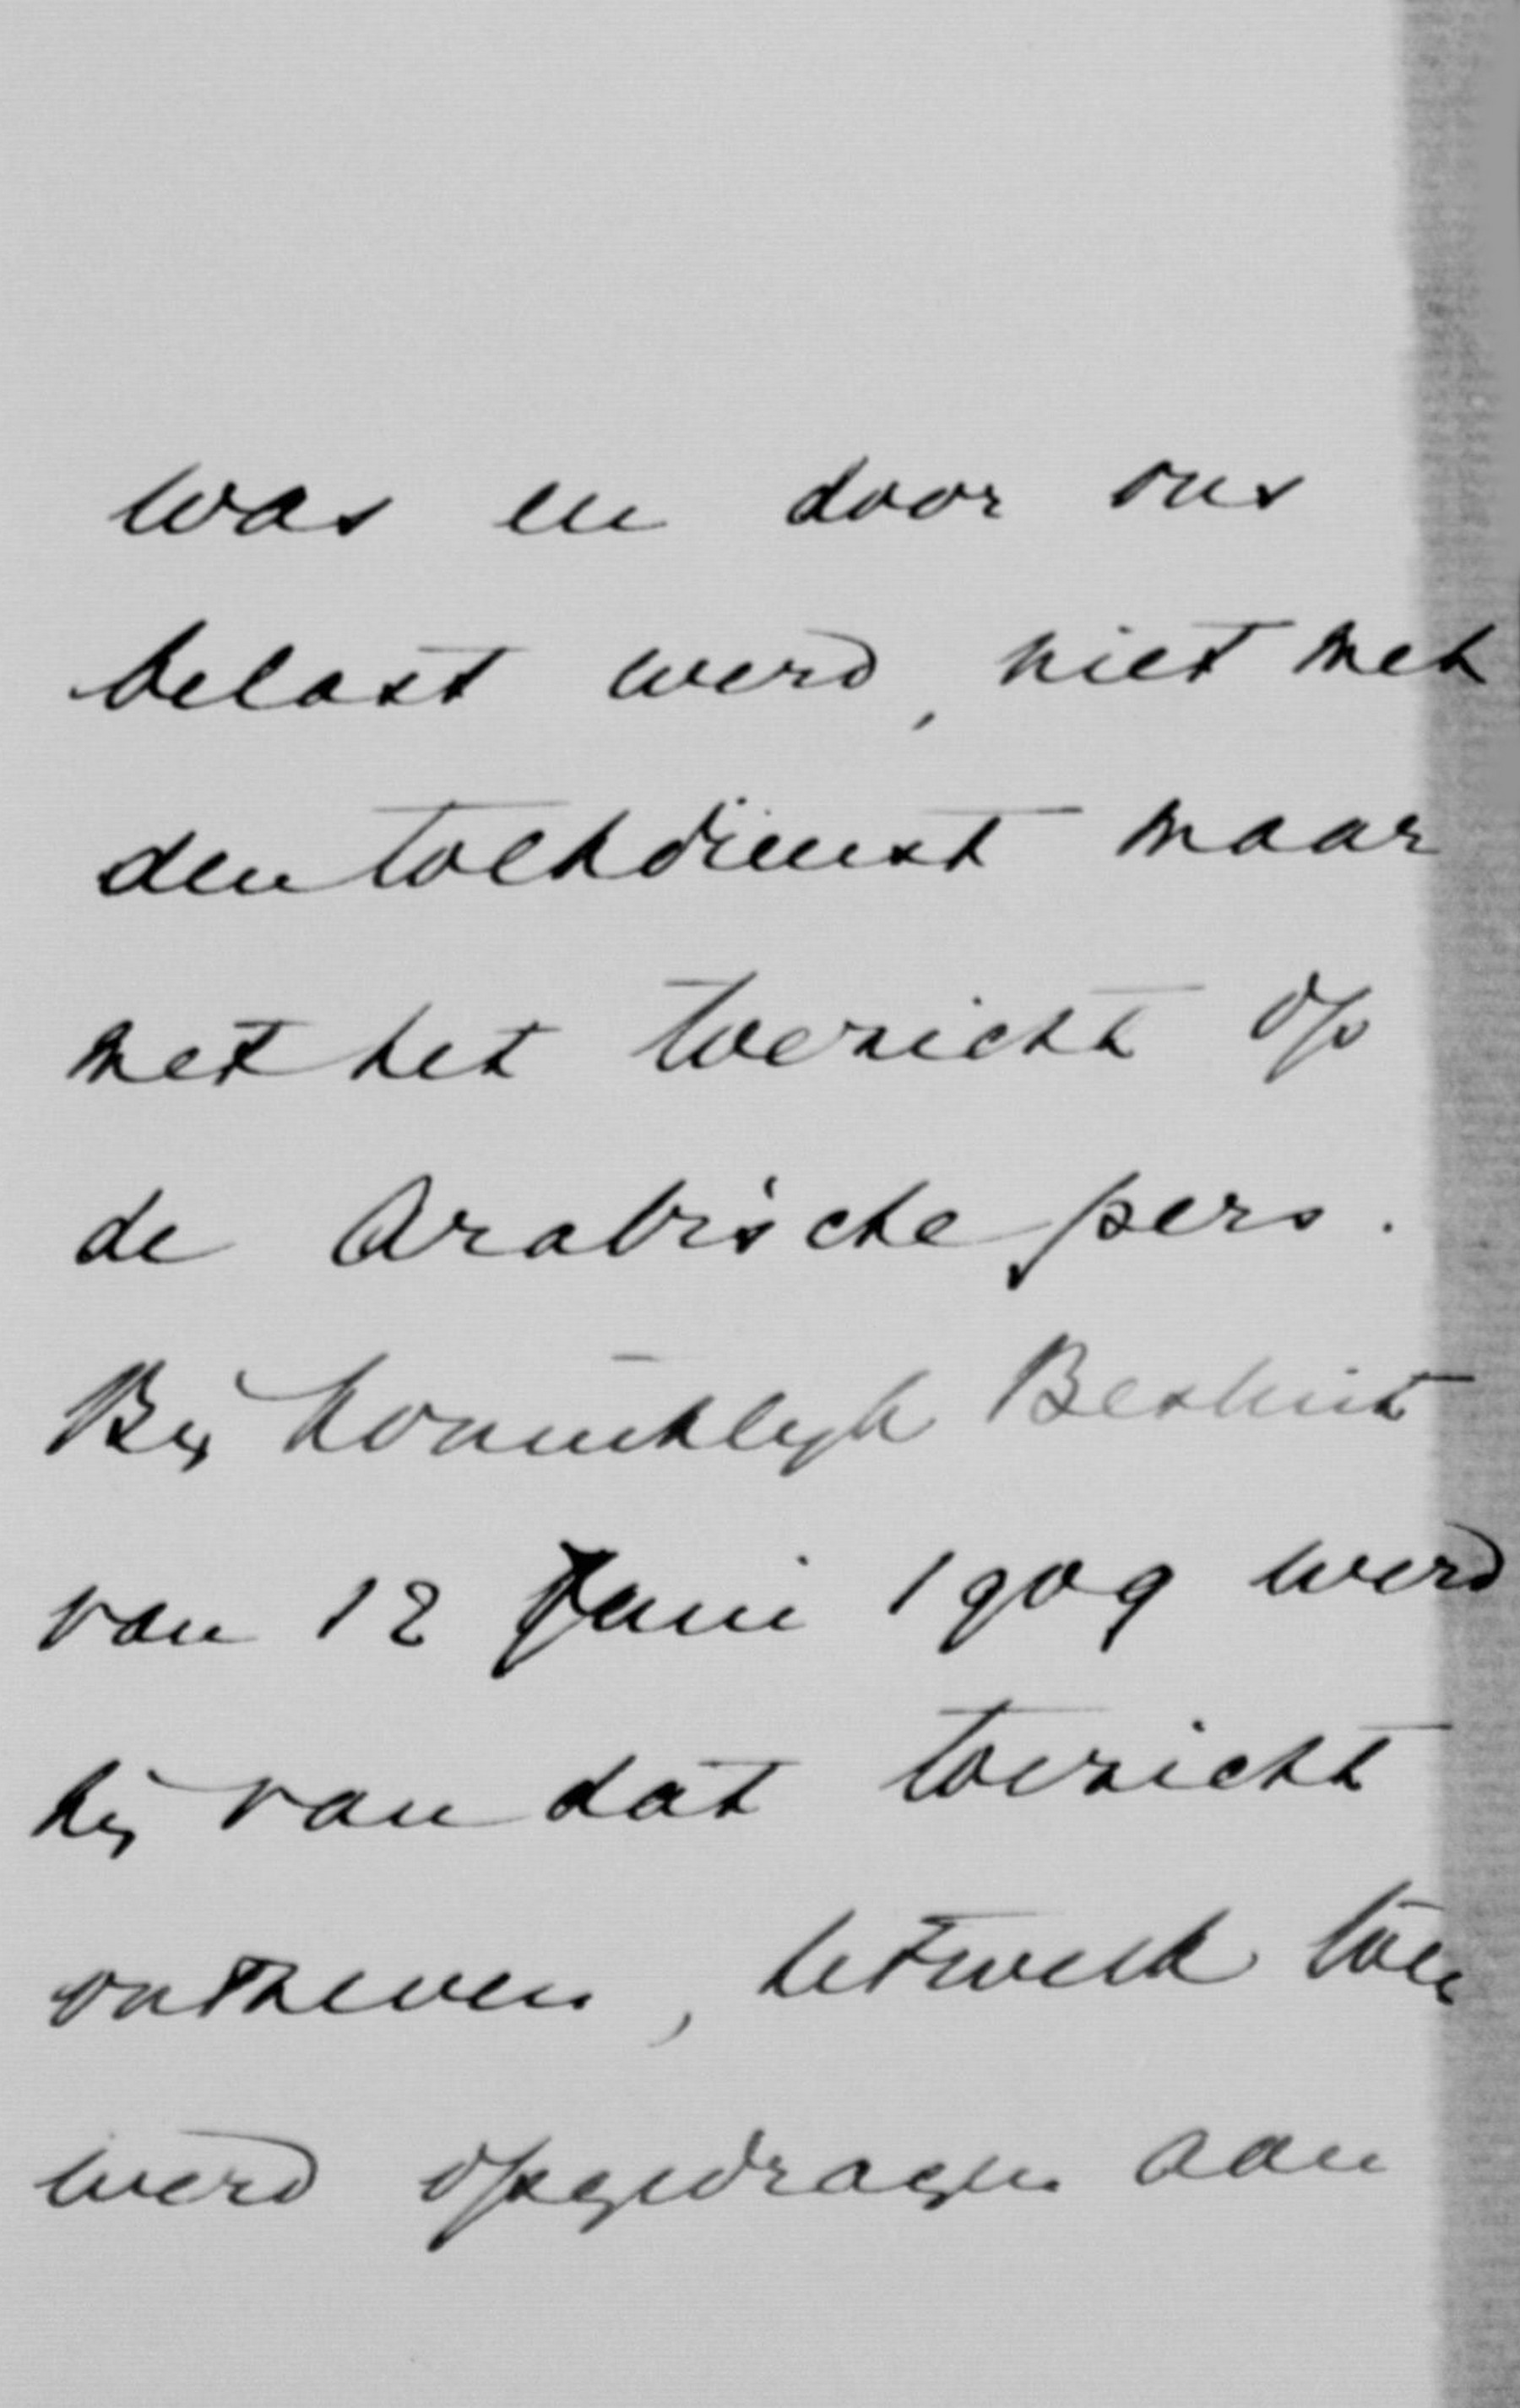 was en door ons
belast werd, niet met
den tolkdienst maar
met het toezicht op
de Arabische pers.
Bij Koninklijk Besluit
van 12 Juni 1909 werd
hij van dat toezicht
ontheven, hetwelk toen
werd opgedragen aan